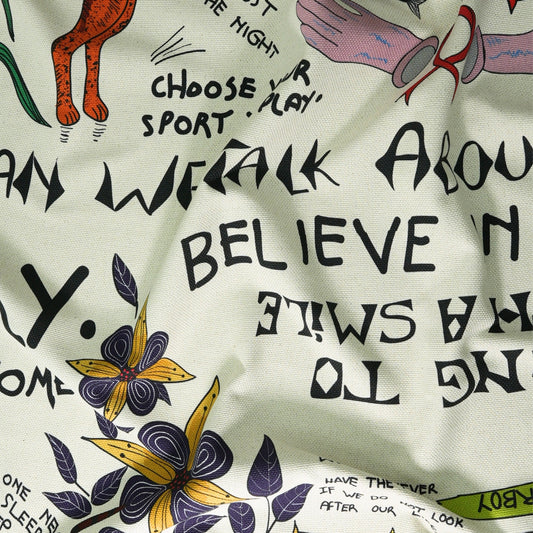 THE NIGHT
CHOOSE YOUR
SPORT 'PLAY'
AN WE TALK ABOU
BELIEVE IN
Y.
SMILE
TO
OME
ONE NE
SLEEP
HAVE THE
IF WE DO NOT LOOK
AFTER OUR
RBOY